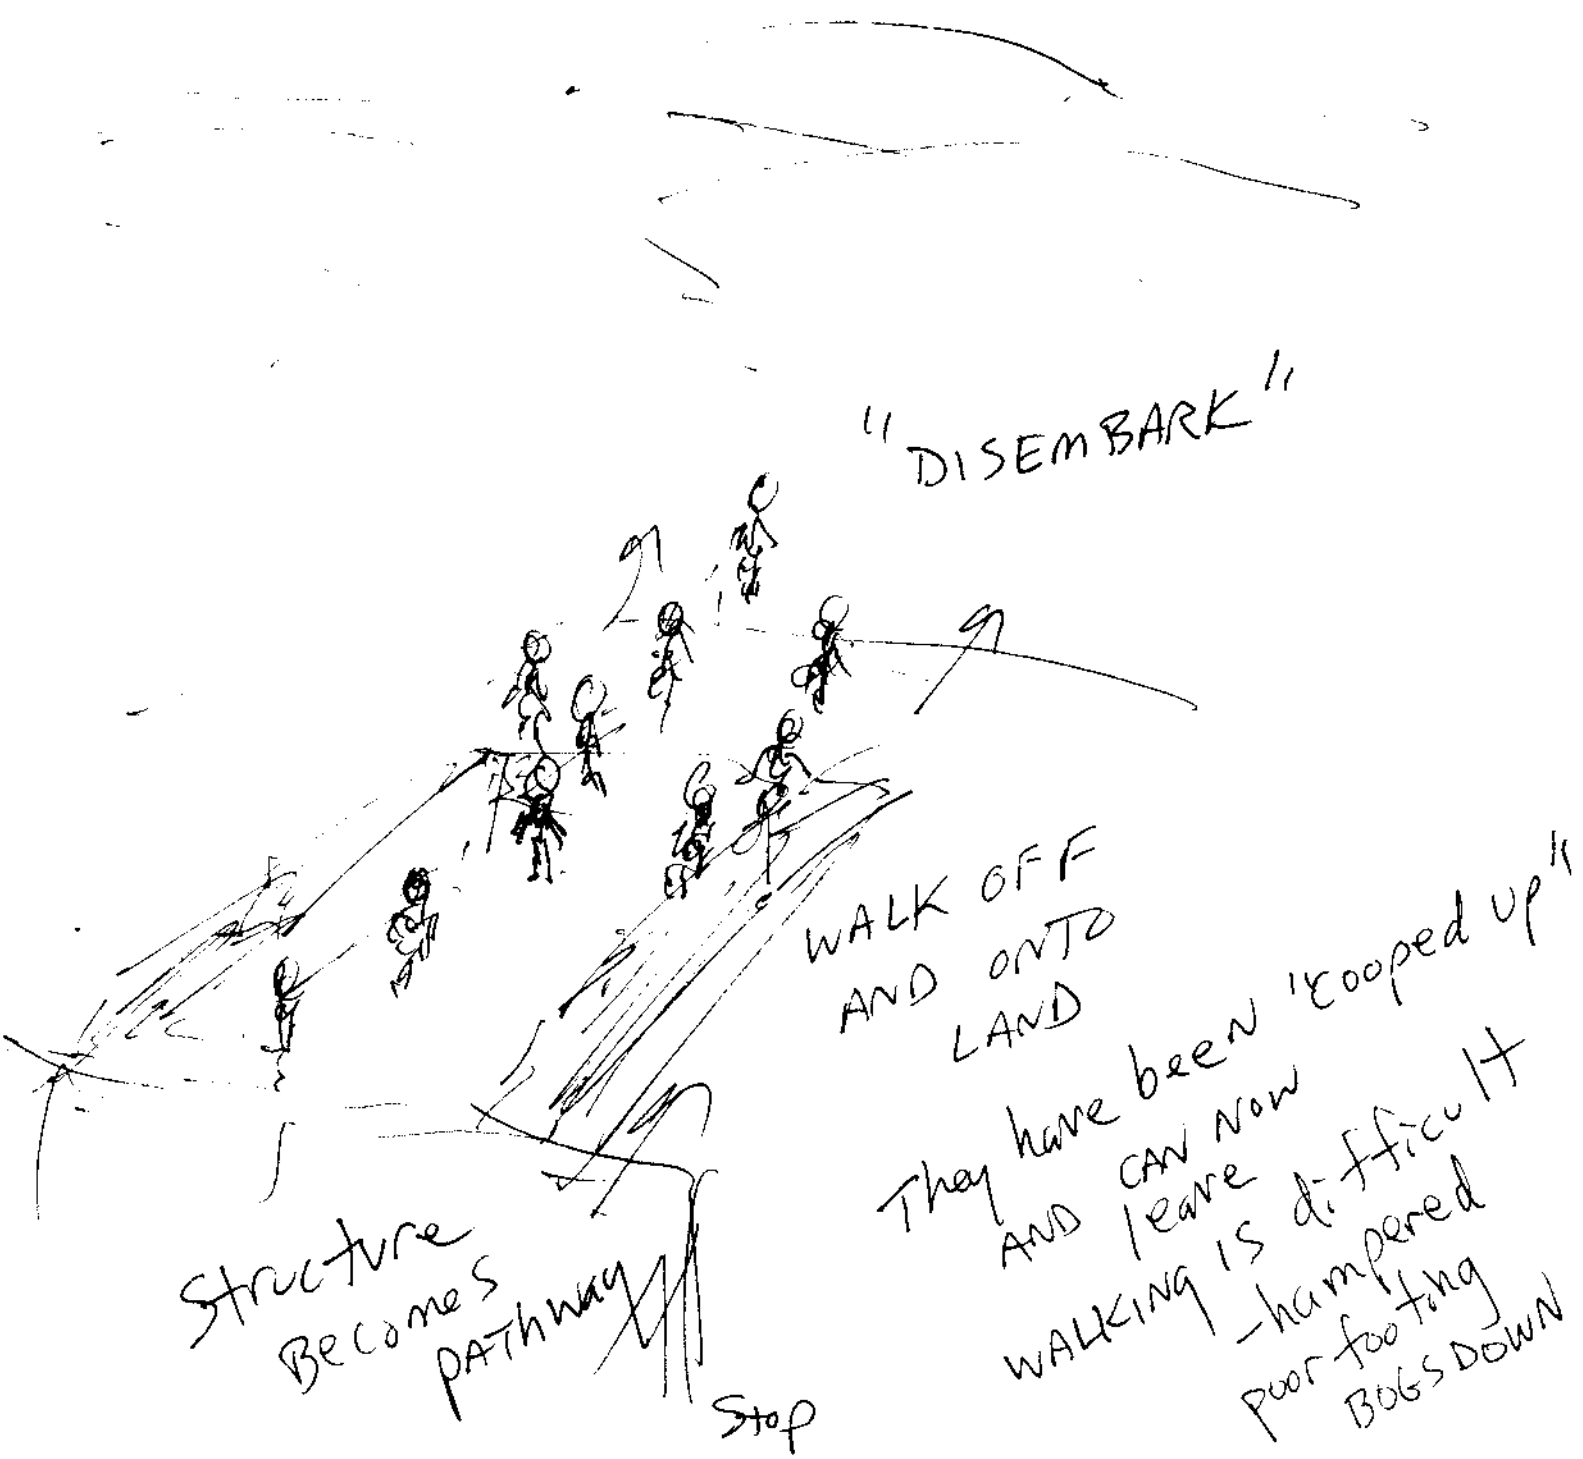 "DISEMBARK"
WALK OFF
AND ONTO
LAND
They have been "cooped up"
AND CAN NOW
leave
WALKING IS difficult
-hampered
poor footing
BOGS DOWN
Structure
Becomes
pAThway
Stop